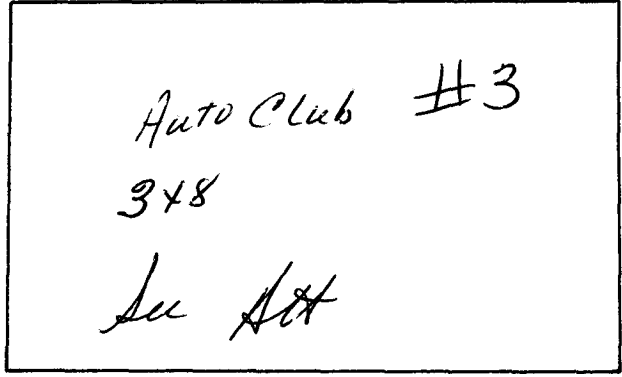 Auto Club #3
3x8
See Att